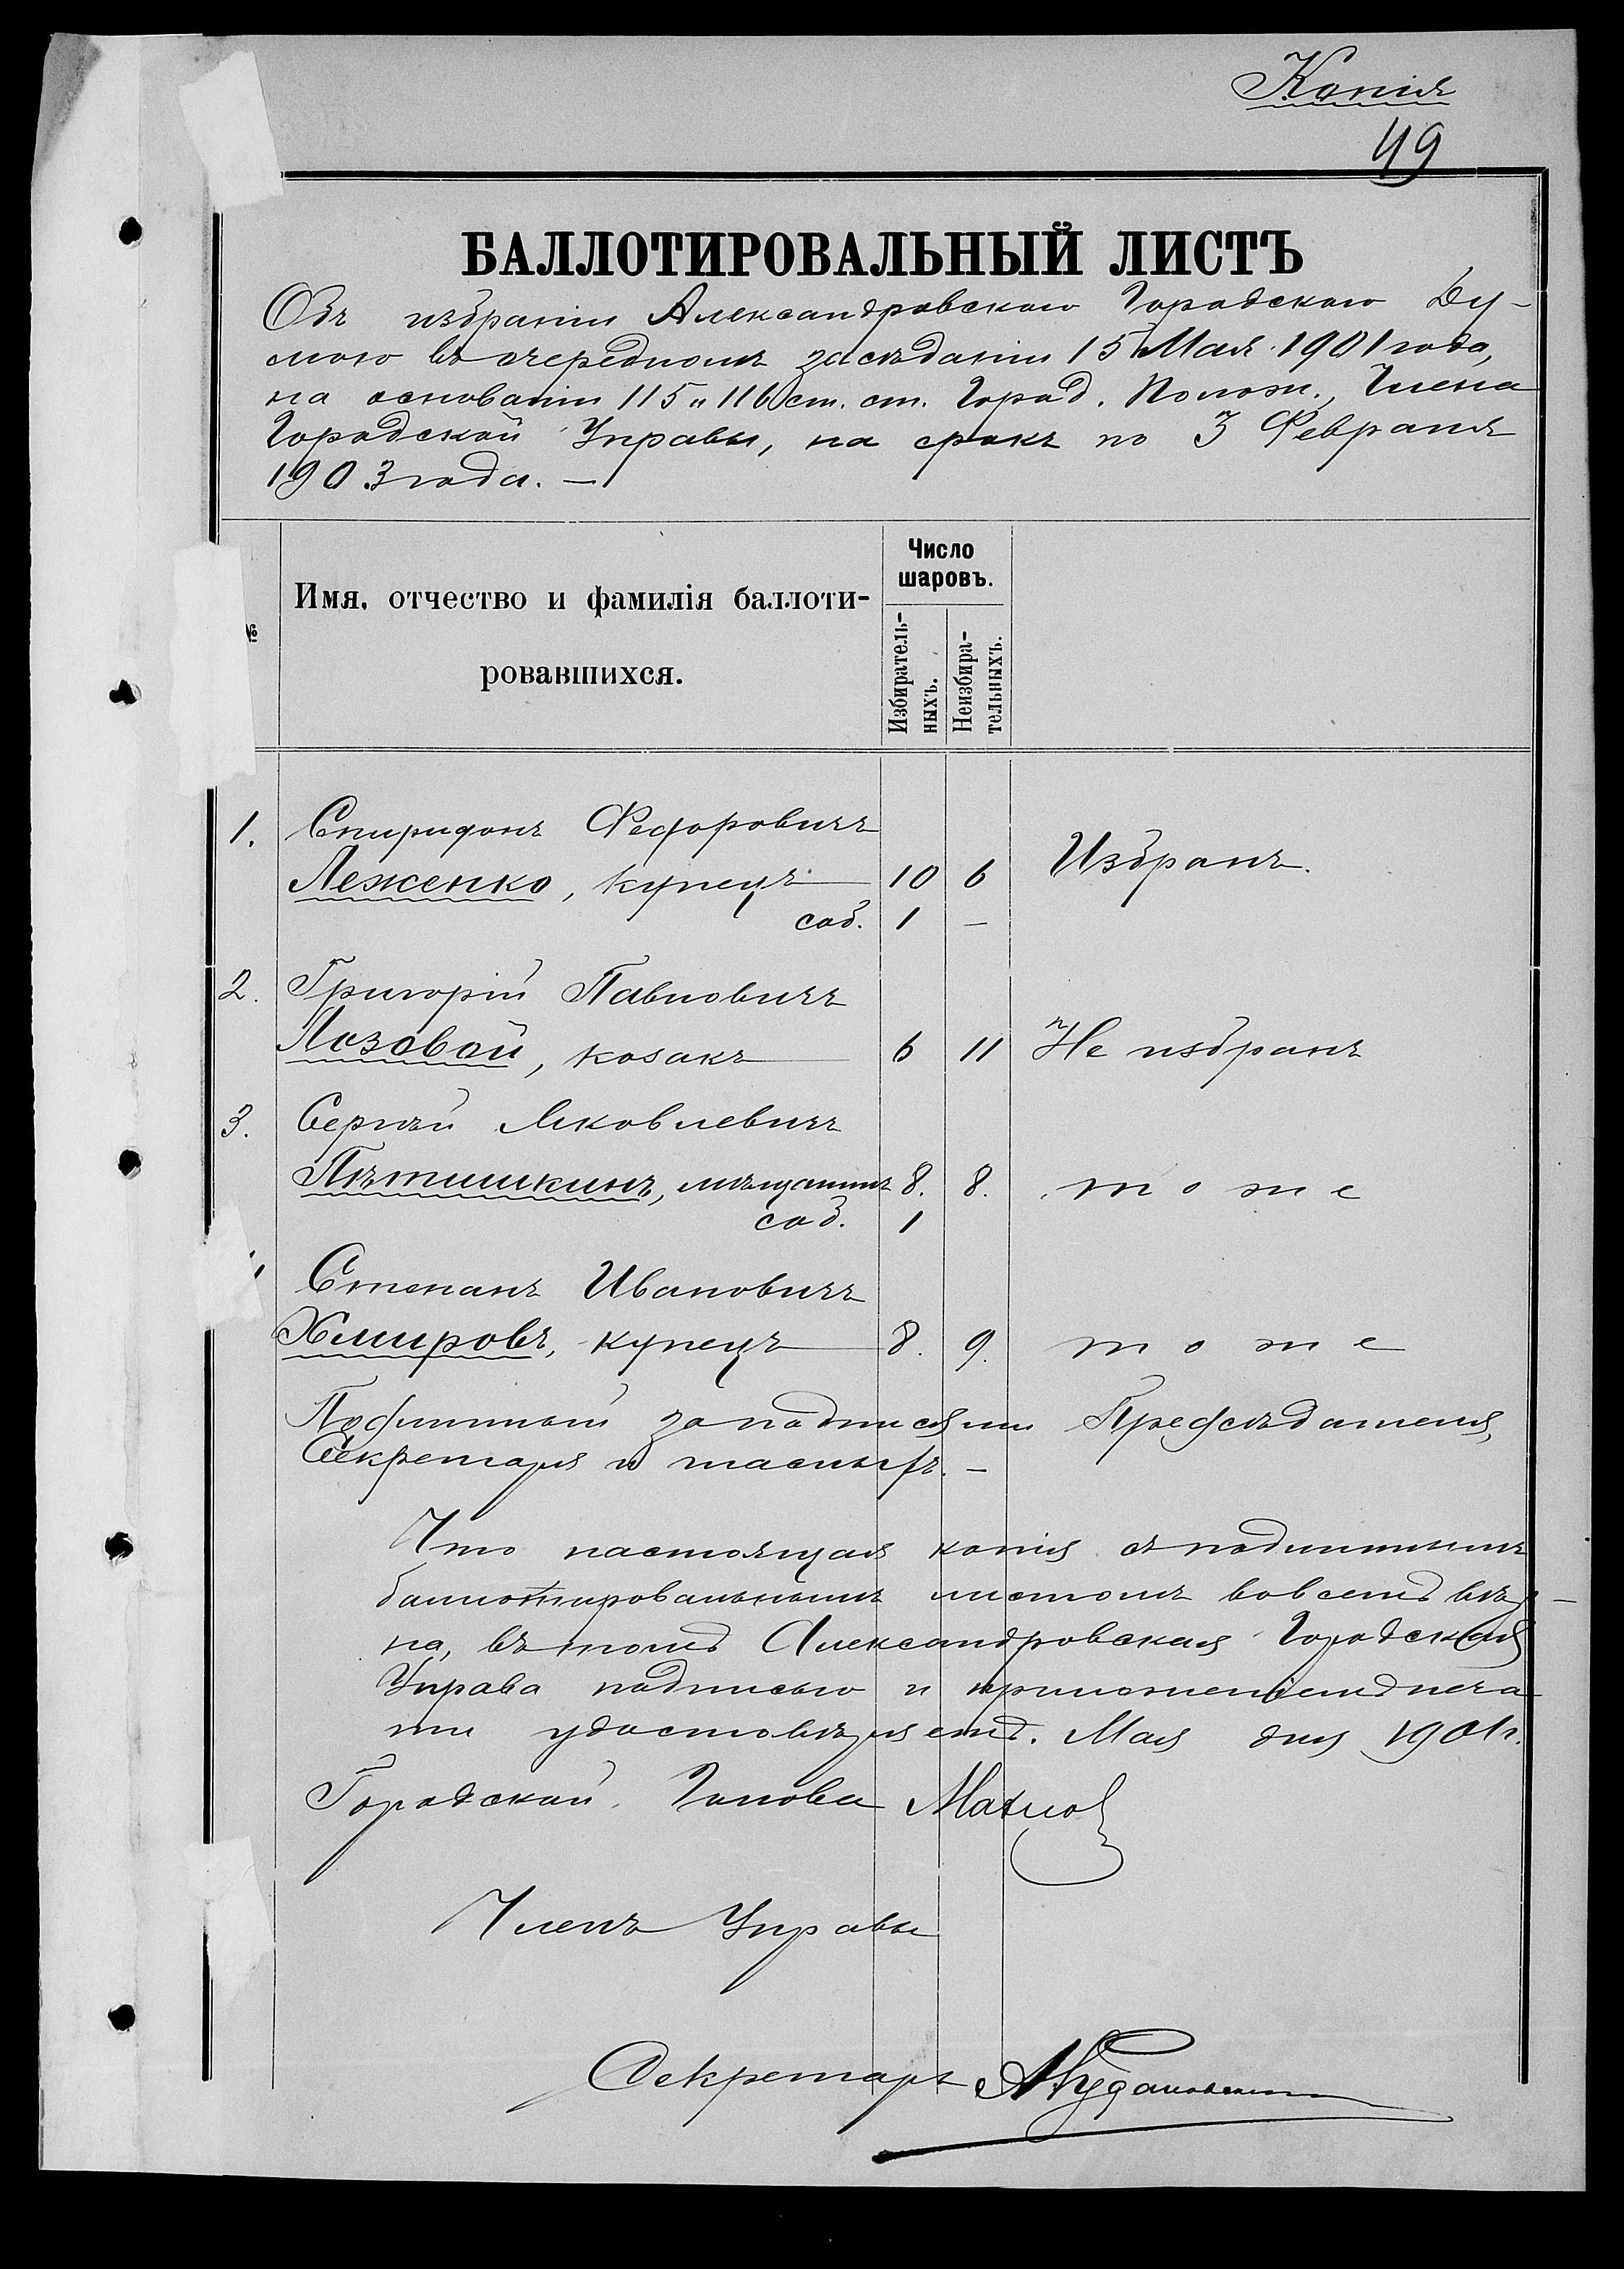 Копія
49
БАЛЛОТИРОВАЛЬНЫЙ ЛИСТЪ
Объ избраніи Александровскою Городскою Ду-
мою въ очередномъ засѣданіи 15 Мая 1901 года,
на основаніи 115 и 116 ст. ст. Город. Полож., Члена
Городской Управы, на срокъ по 3 Февраля
1903 года. —
№
Имя, отчество и фамилія баллоти-
ровавшихся.
Число
шаровъ.
Избиратель-
ныхъ.
Неизбира-
тельныхъ.
1. Спиридонъ Федоровичъ
Леженко, купецъ 10 6 Избранъ.
соб. 1 —
2. Григорій Павловичъ
Лозовой, козакъ 6 11 Не избранъ
3. Сергѣй Яковлевичъ
Пѣтишкинъ, мѣщанинъ 8. 8. тоже
соб. 1
Степанъ Ивановичъ
Хмировъ, купецъ 8. 9. тоже
Подлинный за подписями Предсѣдателя,
Секретаря и гласныхъ. —
Что настоящая копія съ подлиннымъ
баллотировальнымъ листомъ во всемъ вѣр-
на, въ томъ Александровская Городская
Управа подписью и приложеніемъ печа-
ти удостовѣряетъ. Мая дня 1901 г.
Городской Голова Махно
Членъ Управы
Секретарь